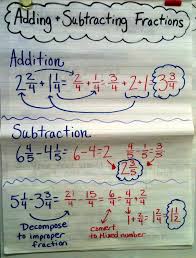 Adding + Subtracting Fractions
Addition
2 2/4 + 1 1/4 = 2/4 + 1/4 = 3/4 + 2 + 1 = 3 3/4
Subtraction
6 4/5 - 4 1/5 = 6 - 4 = 2 4/5 - 1/5 = 3/5
2 3/5
5 1/4 - 3 3/4 = 21/4 - 15/4 = 6/4 = 4/4 + 2/4
Decompose to improper fraction
convert to Mixed number